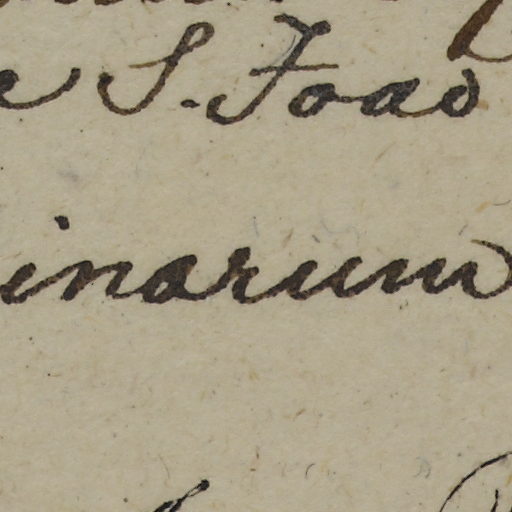 e S. Joao
inarum